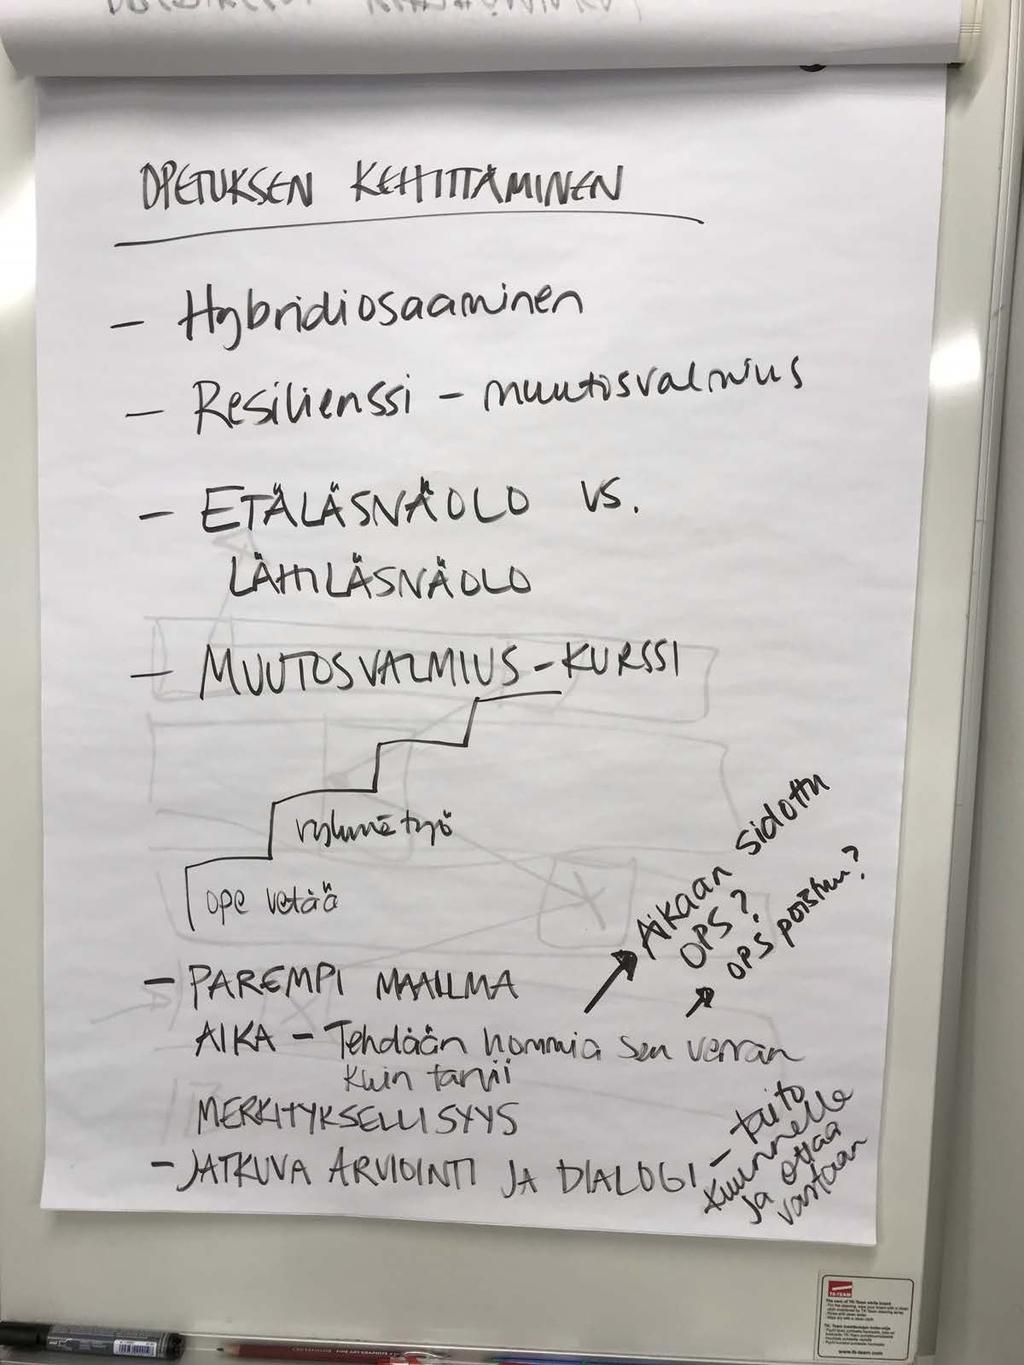 OPETUKSEN KEHITTÄMINEN
- Hybridiosaaminen
- Resilienssi - muutosvalmius
- ETÄLÄSNÄOLO VS.
LÄHILÄSNÄOLO
- MUUTOSVALMIUS-KURSSI
ryhmätyö
ope vetää
Aikaan sidottu
OPS?
OPS poistuu?
- PAREMPI MAAILMA
AIKA - Tehdään hommia sen verran
kuin tarvii
MERKITYKSELLISYYS
- JATKUVA ARVIOINTI JA DIALOGI - taito
kuunnella
ja ottaa
vastaan
TK-TEAM
www.tk-team.com